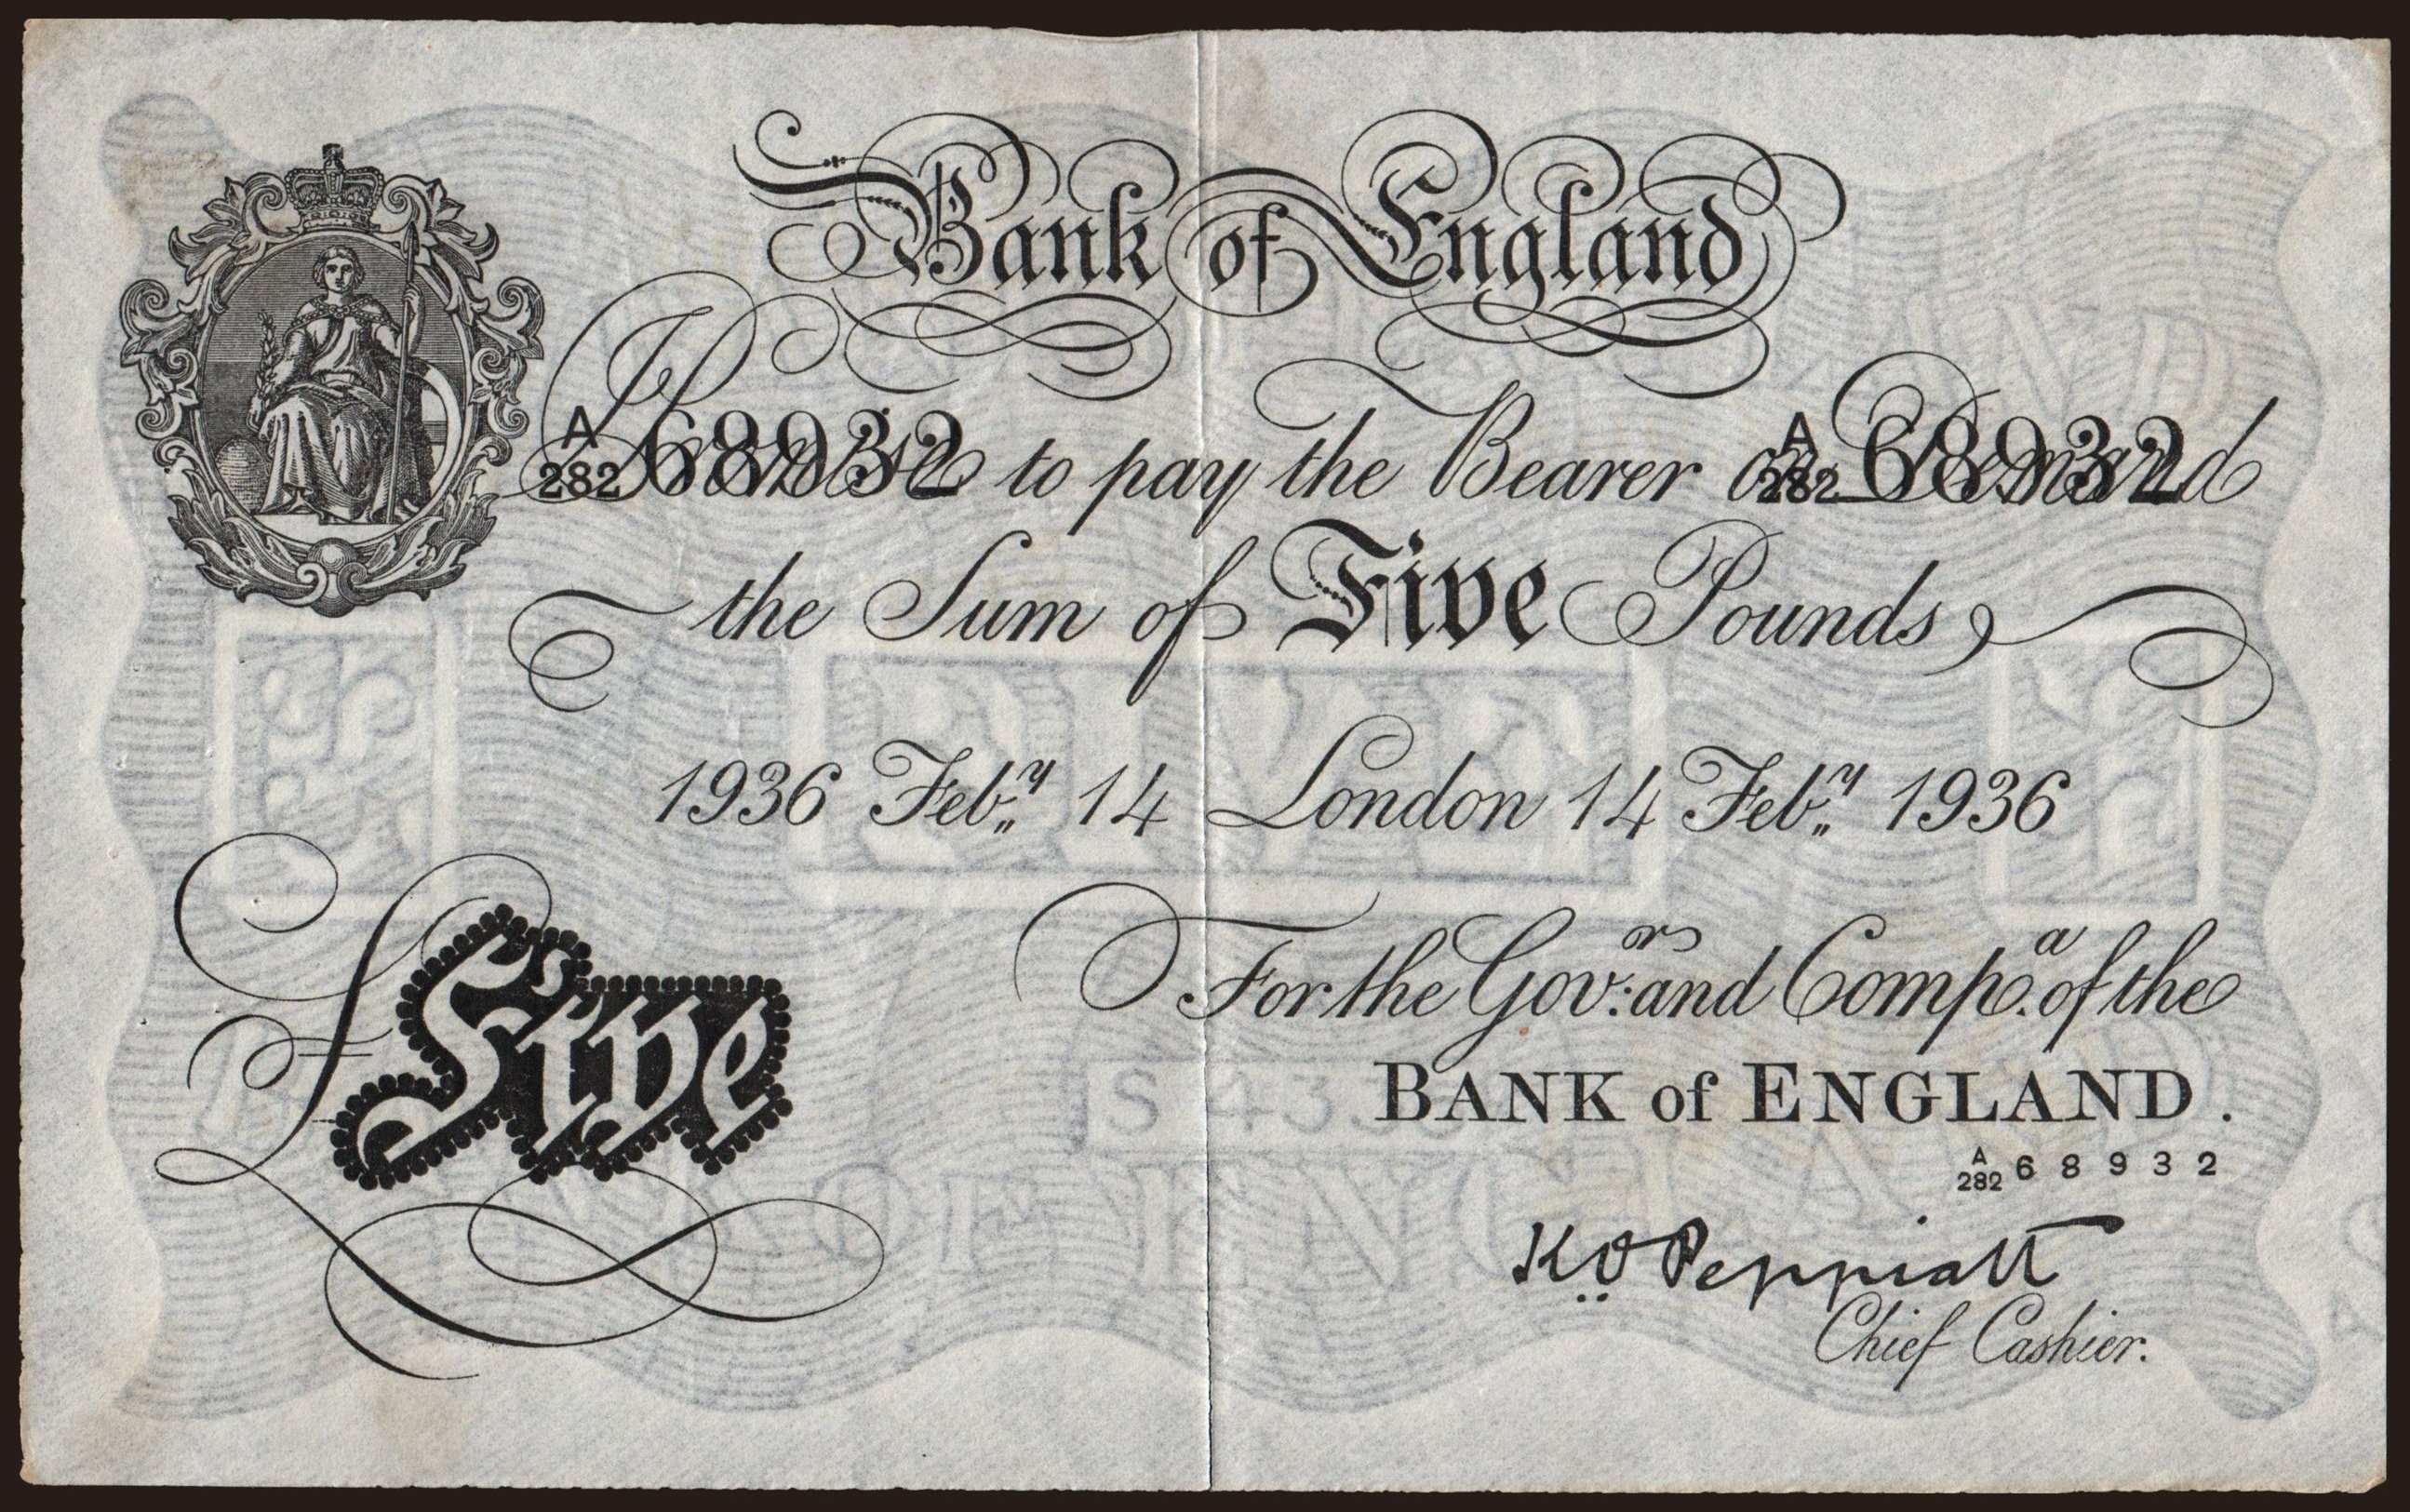 Bank of England
A
282 68932
A
282 68932
I Promise to pay the Bearer on Demand
the Sum of Five Pounds
1936 Feb.y 14 London 14 Feb.y 1936
For the Gov.r and Comp.a of the
£Five
BANK of ENGLAND.
A
282 68932
K O Peppiatt
Chief Cashier.